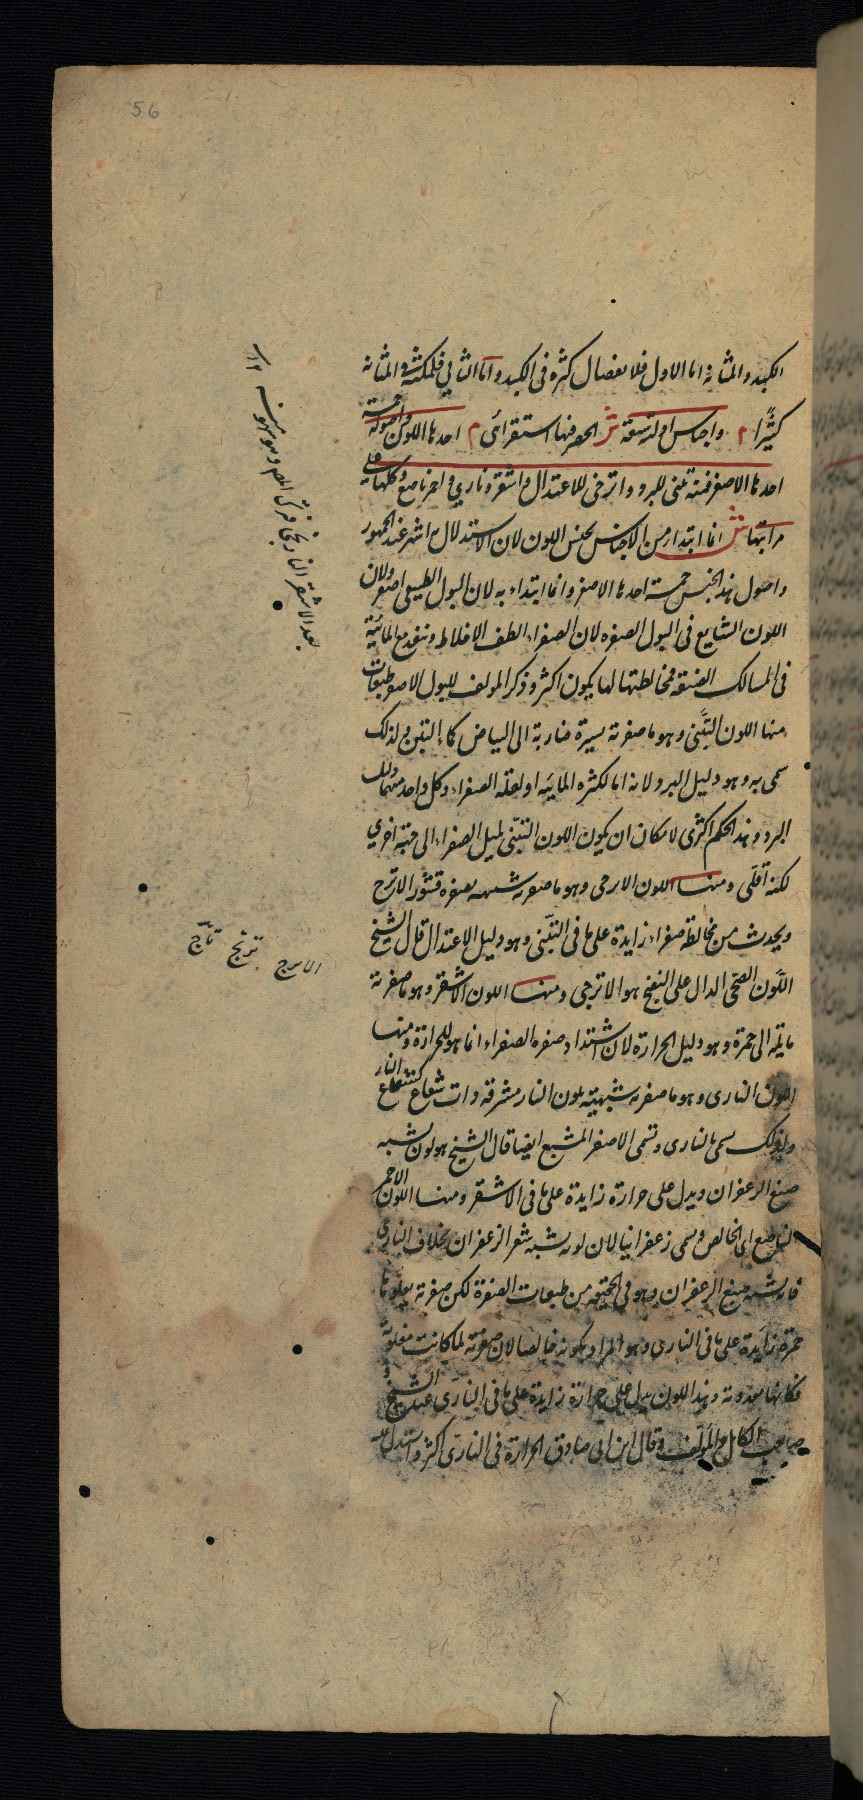 56
الكبد والمثانة اما الاول فلانفصال كثره فى الكبد واما الثانى فلمكثه فى المثانة
كثيرا م واجناس ادلته تسعة ش الحصر فيها استقرائى م احدها اللون واصوله خمسة
احدها الاصفر فمنه تبنى للبرد واترجى للاعتدال واشقر ونارى واحمر ناصع وكلها على
مراتبها ش انما ابتدأ من الاجناس بجنس اللون لان الاستدلال به اشهر عند الجمهور
واصول هذا الجنس خمسة احدها الاصفر وانما ابتداء به لان البول الطبيعى اصفر ولان
اللون الشايع فى البول الصفره لان الصفراء الطف الاخلاط وتنفذ مع المائية
فى المسالك الضيقه فمخالطتها لها يكون اكثر وذكر المولف للبول الاصفر طبقات
منها اللون التبنى وهو ما صفرته يسيرة ضاربة الى البياض كماء التبن ولذلك
سمى به وهو دليل البرد لانه اما لكثره المائيه او لقلة الصفراء وكل واحد منهما دليل
البرد وهذا الحكم اكثرى لامكان ان يكون اللون التبنى لميل الصفراء الى جهة اخرى
لكنه اقلى ومنها اللون الاترجى وهو ما صفرته شبيهه بصفره قشور الاترج
ويحدث من مخالطة صفراء زايدة على ما فى التبنى وهو دليل الاعتدال قال الشيخ
اللون الصحى الدال على النضج هو الاترجى ومنها اللون الاشقر وهو ما صفرته
مايلة الى حمرة وهو دليل الحرارة لان اشتداد صفره الصفراء انما هو للحرارة ومنها
اللون النارى وهو ما صفرته شبيهة بلون النار مشرقه ذات شعاع كشعاع النار
ولذلك سمى بالنارى وتسمى الاصفر المشبع ايضا قال الشيخ هو لون يشبه
صبغ الزعفران ويدل على حرارة زايدة على ما فى الاشقر ومنها اللون الاحمر
الناصع اى الخالص وسمى زعفرانيا لان لونه يشبه شعر الزعفران بخلاف النارى
فانه يشبه صبغ الزعفران وهو فى الحقيقه من طبقات الصفرة لكن صفرته يعلوها
حمرة زايدة على ما فى النارى وهو المراد بكونه خالصا لان صفرته لما كانت مغلوبة
فكانها معدومة وهذا اللون يدل على حرارة زايدة على ما فى النارى عند الشيخ و
صاحب الكامل والمولف وقال ابن ابى صادق الحرارة فى النارى اكثر واستدل
بعد الاشقر النارنجى
الاترج ترنج